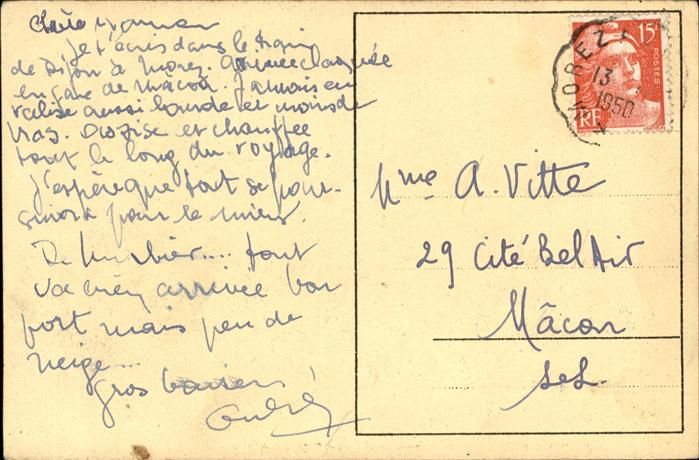 Chère Maman
Je t'écris dans le train
de Dijon à Morez. Arrivée
en gare de Mâcon. J'avais
valise aussi lourde et moins de
bras. Assise et chauffée
tout le long du voyage.
J'espère que tout se pour-
suivra pour le mieux.
hier.... tout
va bien arrivée bon
port mais peu de
neige...
Gros baisers
André
15F
POSTES
RF
MOREZ
13
1950
Mme A. Vitte
29 Cité Bel Air
Mâcon
S&L.